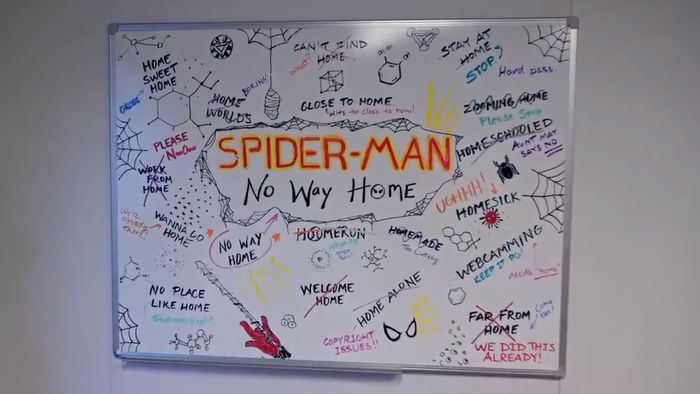 HOME
SWEET
HOME
GROSS!
CAN'T FIND
HOME
What?
STAY AT
HOME
STOP.
Hard pass.
HOME
WORLDS
BORING!
CLOSE TO HOME
Hits too close to home!
ZOOMING HOME
Please Stop
HOMESCHOOLED
AUNT MAY
SAYS NO
PLEASE
NoOoo
WORK
FROM
HOME
SPIDER-MAN
No Way Home
UGHHH!
HOMESICK
We're
already
there!
WANNA GO
HOME
NO WAY
HOME
HOOMERUN
HOMEMADE
Too Cutesy
WEBCAMMING
KEEP IT PG!
needs "home"
NO PLACE
LIKE HOME
Trademarked?
WELCOME
HOME
HOME ALONE
COPYRIGHT
ISSUES!!
FAR FROM
HOME
WE DID THIS
ALREADY!